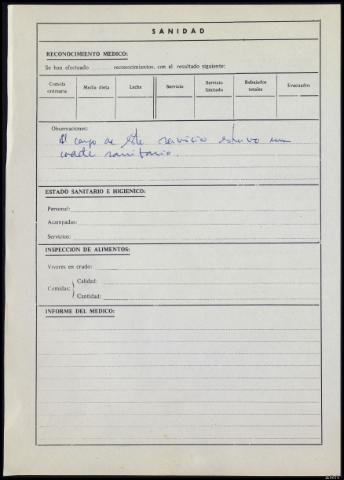 SANIDAD
RECONOCIMIENTO MEDICO:
Se han efectuado reconocimientos, con el resultado siguiente:
Comida ordinaria
Media dieta
Leche
Servicio
Servicio limitado
Rebajados totales
Evacuados
Observaciones:
Al cargo de este servicio estuvo un
sanitario.
ESTADO SANITARIO E HIGIENICO:
Personal:
Acampadas:
Servicios:
INSPECCION DE ALIMENTOS:
Víveres en crudo:
Comidas:
Calidad:
Cantidad:
INFORME DEL MEDICO: